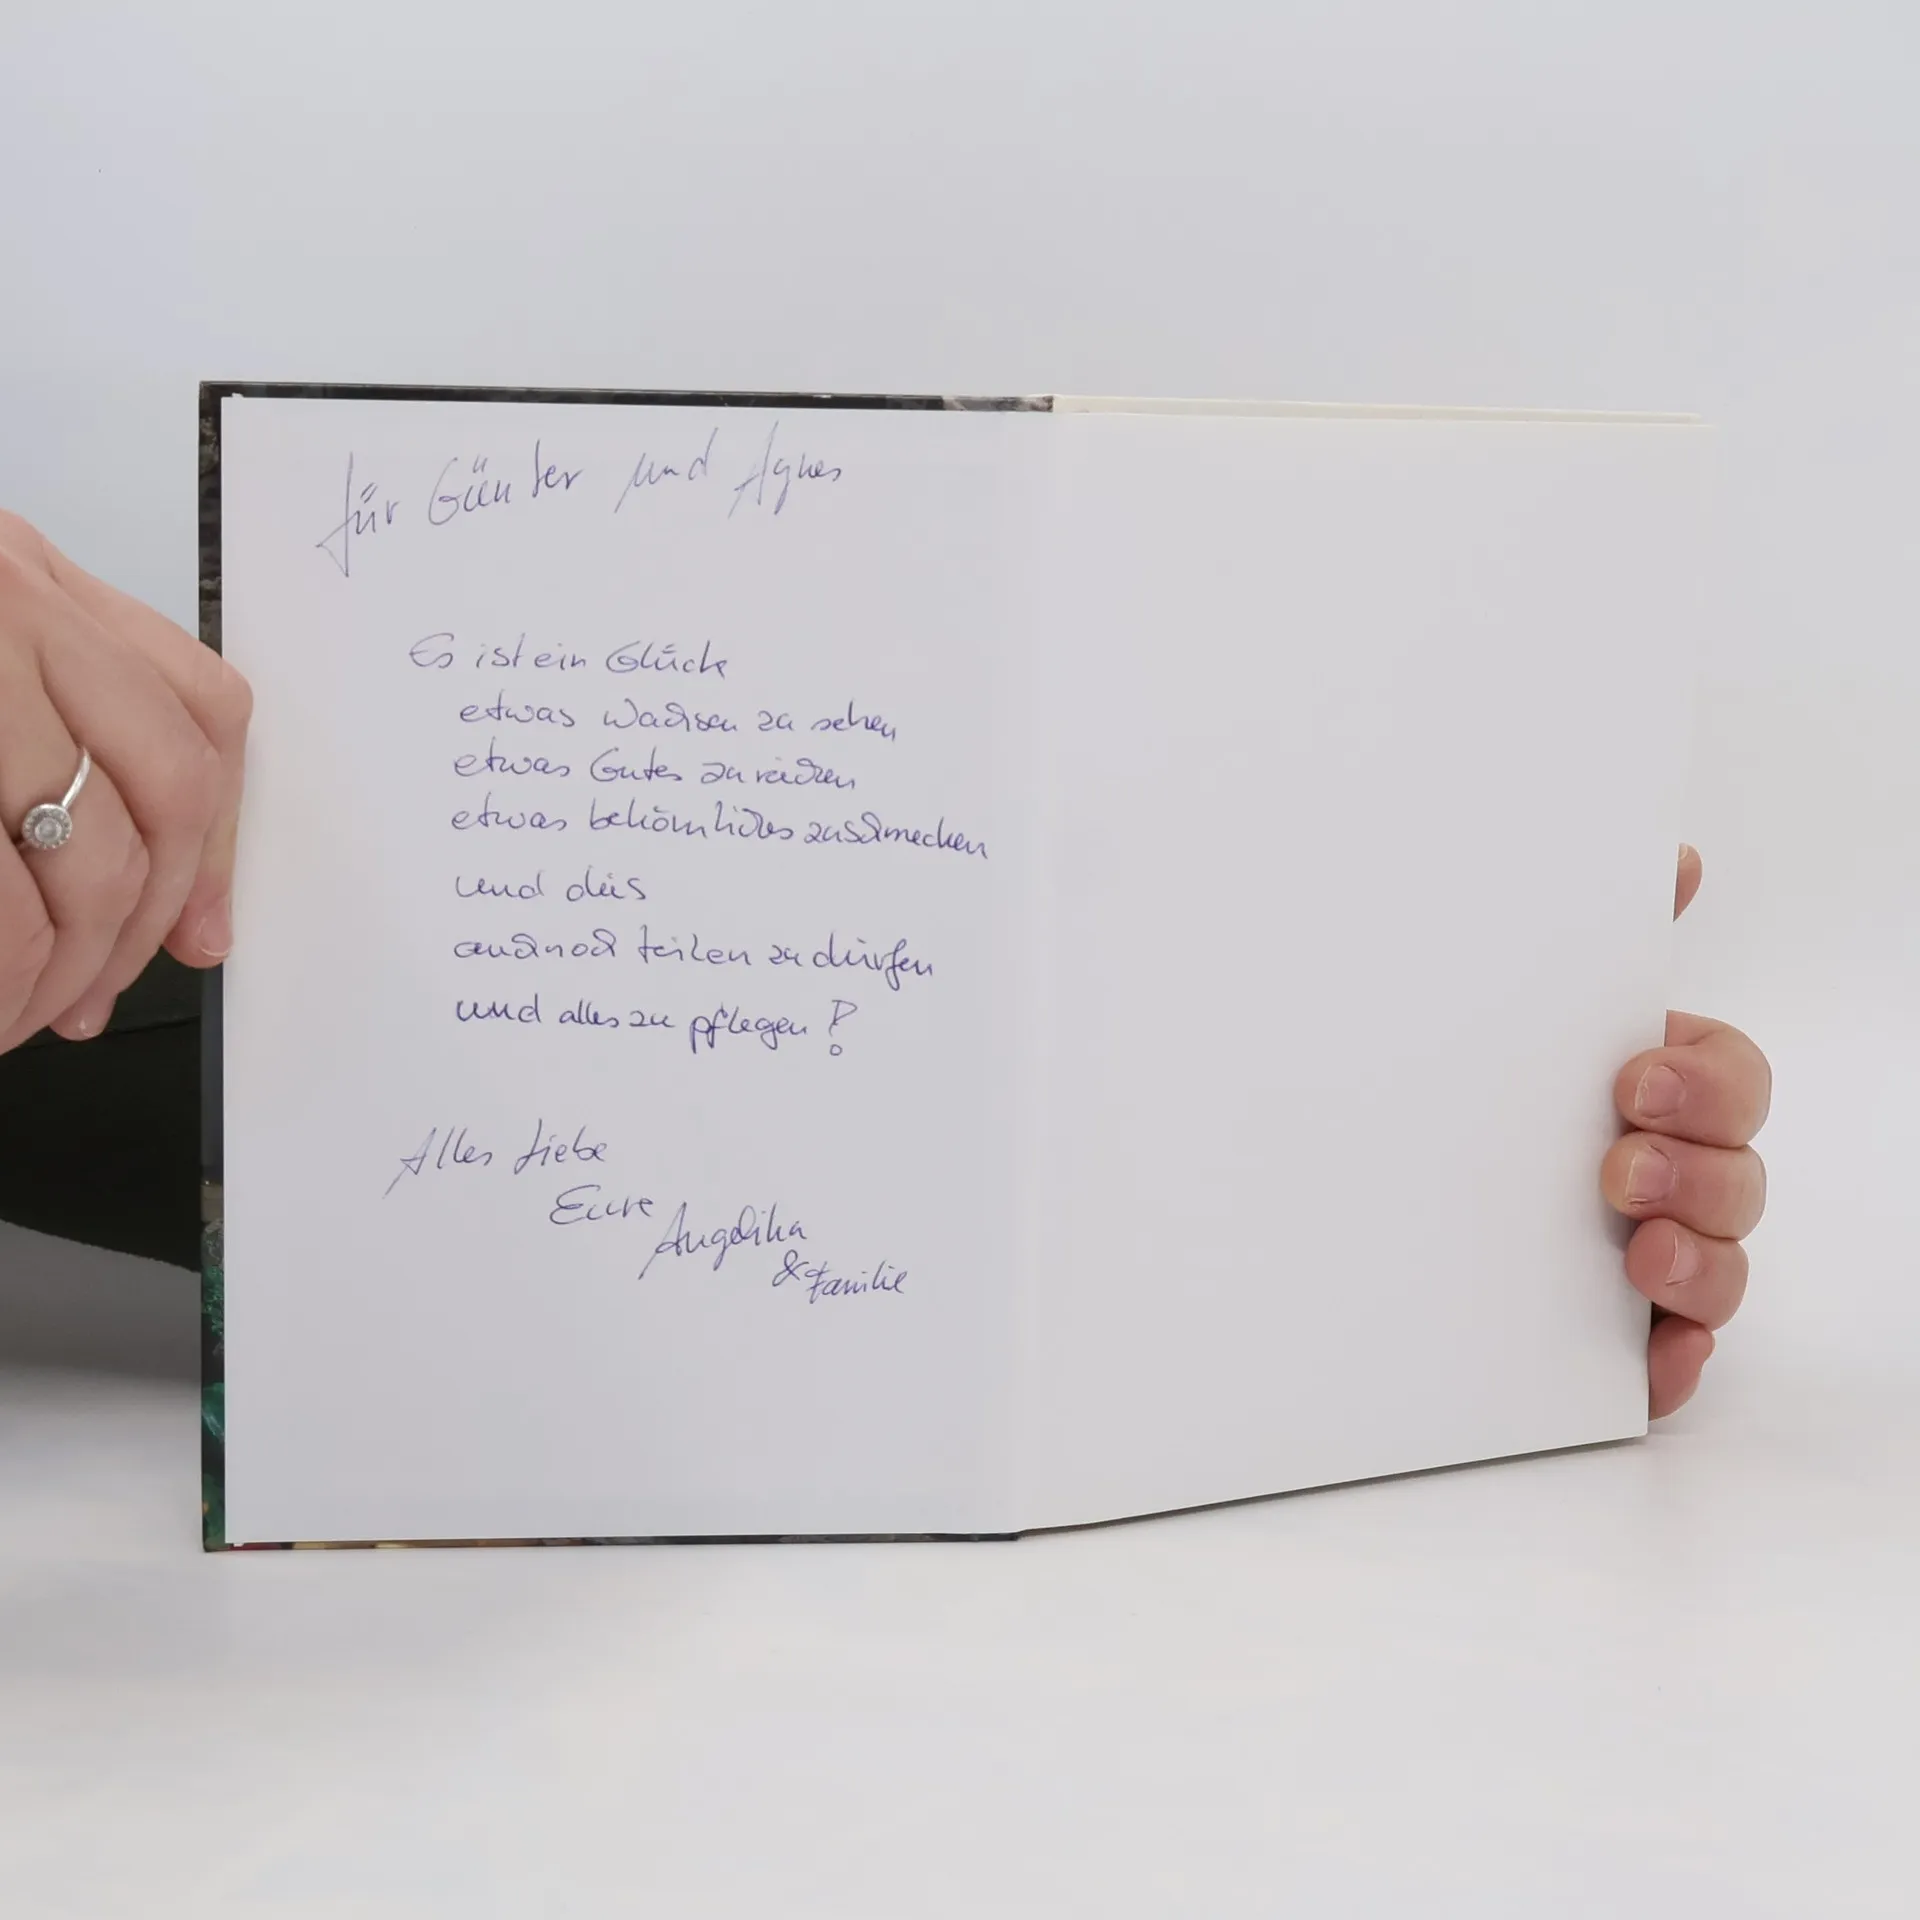 für Günter und Agnes
Es ist ein Glück
etwas wachsen zu sehen
etwas Gutes zu riechen
etwas bekömmliches zu schmecken
und dies
auch noch teilen zu dürfen
und alles zu pflegen!
Alles Liebe
Eure
Angelika
& Familie